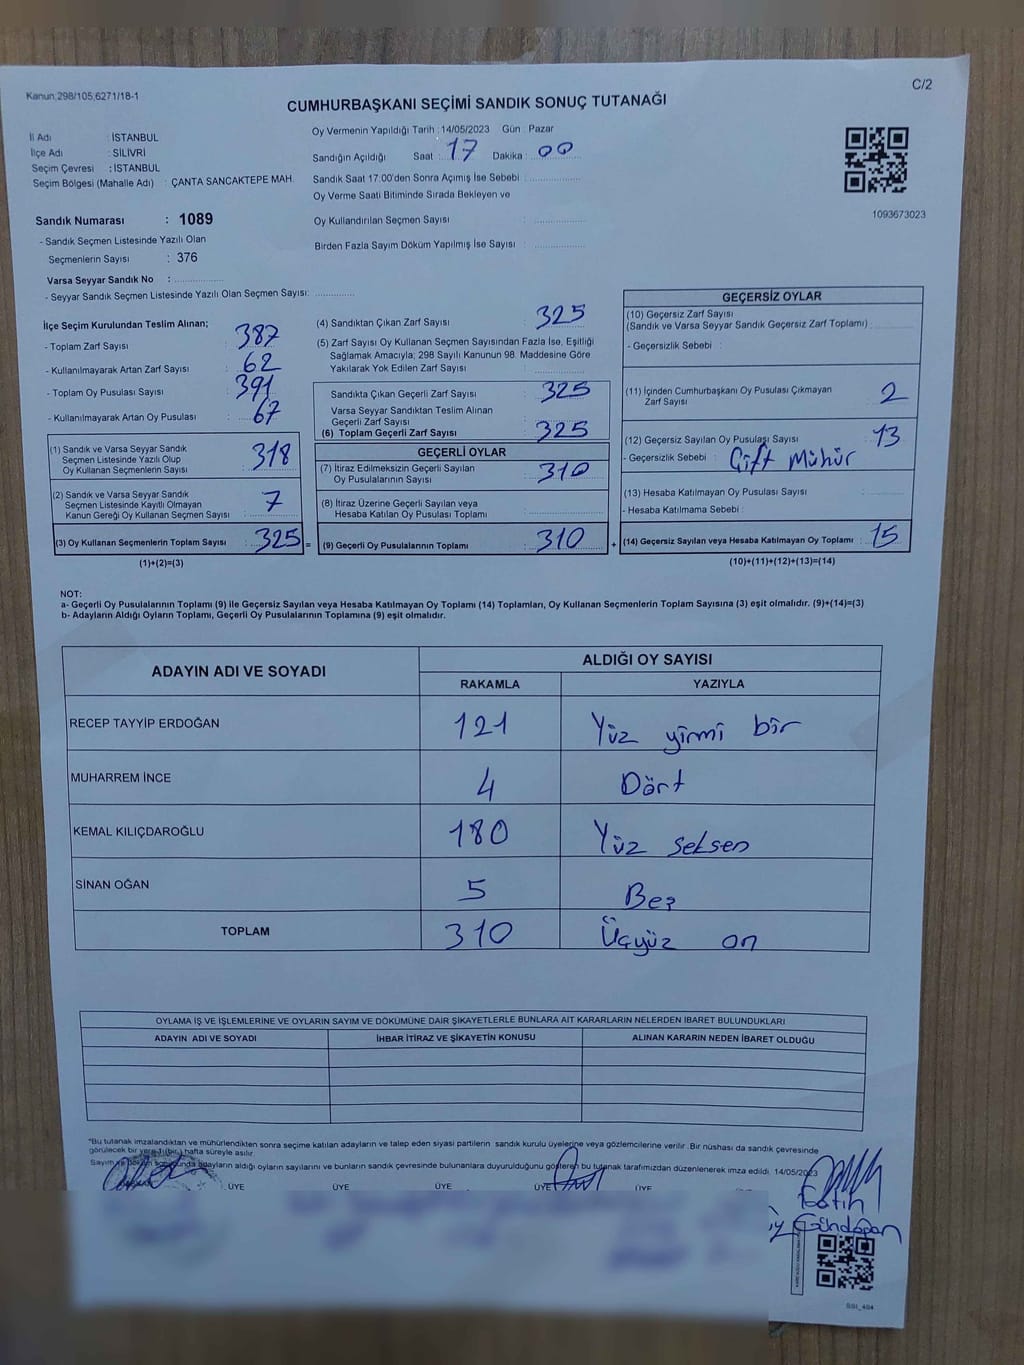 Kanun;298/105;6271/18-1
C/2
CUMHURBAŞKANI SEÇİMİ SANDIK SONUÇ TUTANAĞI
İl Adı : İSTANBUL
İlçe Adı : SİLİVRİ
Seçim Çevresi : İSTANBUL
Seçim Bölgesi (Mahalle Adı) : ÇANTA SANCAKTEPE MAH.
Sandık Numarası : 1089
- Sandık Seçmen Listesinde Yazılı Olan
Seçmenlerin Sayısı : 376
Varsa Seyyar Sandık No :
- Seyyar Sandık Seçmen Listesinde Yazılı Olan Seçmen Sayısı:
Oy Vermenin Yapıldığı Tarih : 14/05/2023 Gün : Pazar
Sandığın Açıldığı Saat : 17 Dakika : 00
Sandık Saat 17.00'den Sonra Açımış İse Sebebi :
Oy Verme Saati Bitiminde Sırada Bekleyen ve
Oy Kullandırılan Seçmen Sayısı :
Birden Fazla Sayım Döküm Yapılmış İse Sayısı :
1093673023
İlçe Seçim Kurulundan Teslim Alınan;
- Toplam Zarf Sayısı : 387
- Kullanılmayarak Artan Zarf Sayısı : 62
- Toplam Oy Pusulası Sayısı : 391
- Kullanılmayarak Artan Oy Pusulası : 67
(1) Sandık ve Varsa Seyyar Sandık
Seçmen Listesinde Yazılı Olup
Oy Kullanan Seçmenlerin Sayısı : 318
(2) Sandık ve Varsa Seyyar Sandık
Seçmen Listesinde Kayıtlı Olmayan
Kanun Gereği Oy Kullanan Seçmen Sayısı : 7
(3) Oy Kullanan Seçmenlerin Toplam Sayısı : 325 =
(1)+(2)=(3)
(4) Sandıktan Çıkan Zarf Sayısı : 325
(5) Zarf Sayısı Oy Kullanan Seçmen Sayısından Fazla İse, Eşitliği
Sağlamak Amacıyla; 298 Sayılı Kanunun 98. Maddesine Göre
Yakılarak Yok Edilen Zarf Sayısı :
Sandıkta Çıkan Geçerli Zarf Sayısı : 325
Varsa Seyyar Sandıktan Teslim Alınan
Geçerli Zarf Sayısı :
(6) Toplam Geçerli Zarf Sayısı : 325
GEÇERLİ OYLAR
(7) İtiraz Edilmeksizin Geçerli Sayılan
Oy Pusulalarının Sayısı : 310
(8) İtiraz Üzerine Geçerli Sayılan veya
Hesaba Katılan Oy Pusulası Toplamı :
(9) Geçerli Oy Pusulalarının Toplamı : 310 +
GEÇERSİZ OYLAR
(10) Geçersiz Zarf Sayısı
(Sandık ve Varsa Seyyar Sandık Geçersiz Zarf Toplamı)
- Geçersizlik Sebebi :
(11) İçinden Cumhurbaşkanı Oy Pusulası Çıkmayan
Zarf Sayısı : 2
(12) Geçersiz Sayılan Oy Pusulası Sayısı : 13
- Geçersizlik Sebebi : Çift Mühür
(13) Hesaba Katılmayan Oy Pusulası Sayısı :
- Hesaba Katılmama Sebebi :
(14) Geçersiz Sayılan veya Hesaba Katılmayan Oy Toplamı : 15
(10)+(11)+(12)+(13)=(14)
NOT:
a- Geçerli Oy Pusulalarının Toplamı (9) ile Geçersiz Sayılan veya Hesaba Katılmayan Oy Toplamı (14) Toplamları, Oy Kullanan Seçmenlerin Toplam Sayısına (3) eşit olmalıdır. (9)+(14)=(3)
b- Adayların Aldığı Oyların Toplamı, Geçerli Oy Pusulalarının Toplamına (9) eşit olmalıdır.
ADAYIN ADI VE SOYADI ALDIĞI OY SAYISI
RAKAMLA YAZIYLA
RECEP TAYYİP ERDOĞAN 121 Yüz yirmi bir
MUHARREM İNCE 4 Dört
KEMAL KILIÇDAROĞLU 180 Yüz seksen
SİNAN OĞAN 5 Beş
TOPLAM 310 Üçyüz on
OYLAMA İŞ VE İŞLEMLERİNE VE OYLARIN SAYIM VE DÖKÜMÜNE DAİR ŞİKAYETLERLE BUNLARA AİT KARARLARIN NELERDEN İBARET BULUNDUKLARI
ADAYIN ADI VE SOYADI İHBAR İTİRAZ VE ŞİKAYETİN KONUSU ALINAN KARARIN NEDEN İBARET OLDUĞU
"Bu tutanak imzalandıktan ve mühürlendikten sonra seçime katılan adayların ve talep eden siyasi partilerin sandık kurulu üyelerine veya gözlemcilerine verilir. Bir nüshası da sandık çevresinde
görülecek bir yere 1 (bir) hafta süreyle asılır.
Sayım ve döküm sonucunda adayların aldığı oyların sayılarını ve bunların sandık çevresinde bulunanlara duyurulduğunu gösteren bu tutanak tarafımızdan düzenlenerek imza edildi. 14/05/2023
ÜYE ÜYE ÜYE ÜYE ÜYE
Fatih
Gündoğan